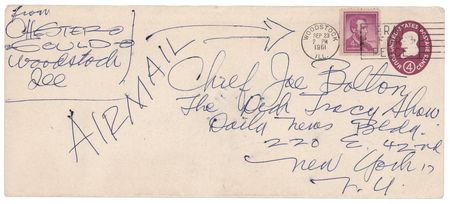 from
CHESTER
GOULD
Woodstock
Ill
AIRMAIL
WOODSTOCK
SEP 23
PM
1961
ILL.
UNITED STATES POSTAGE
4
CENTS
Chief Joe Bolton
The Dick Tracy Show
Daily News Bldg.
220 E. 42nd
New York 17
N.Y.